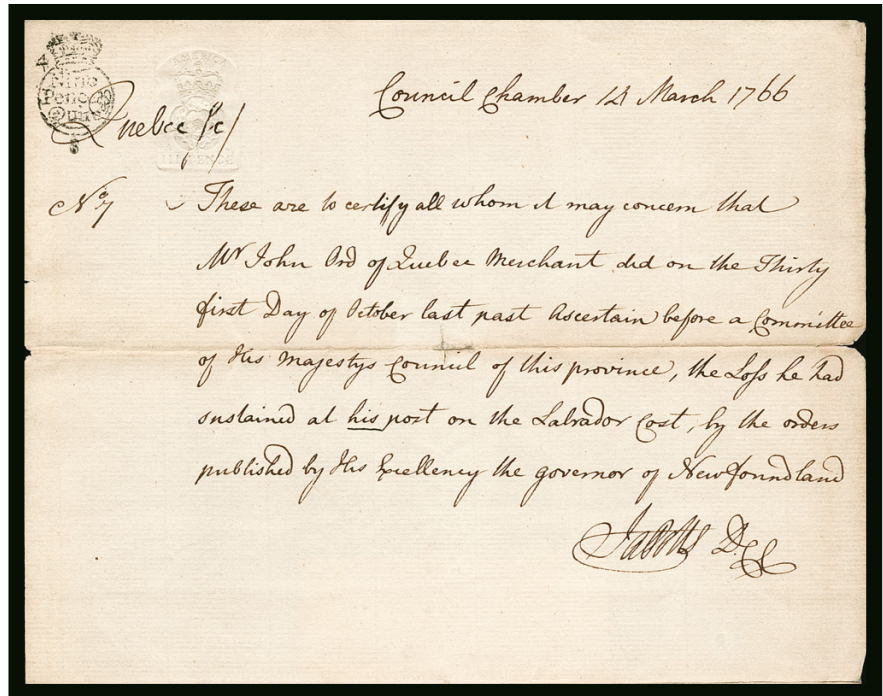 Council Chamber 14 March 1766
Quebec Sc/
AMERICA
III PENCE
No 7
These are to certify all whom it may concern that
Mr John Ord of Quebec Merchant did on the Thirty
first Day of October last past Ascertain before a Committee
of His Majestys Council of this province, the Loss he had
sustained at his post on the Labrador Cost, by the orders
published by His Excellency the governor of Newfoundland
Ja Potts D.C.C.